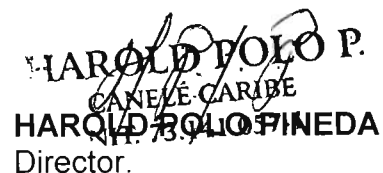 HAROLD POLO P.
CANELÉ CARIBE
HAROLD POLO PINEDA
Director.